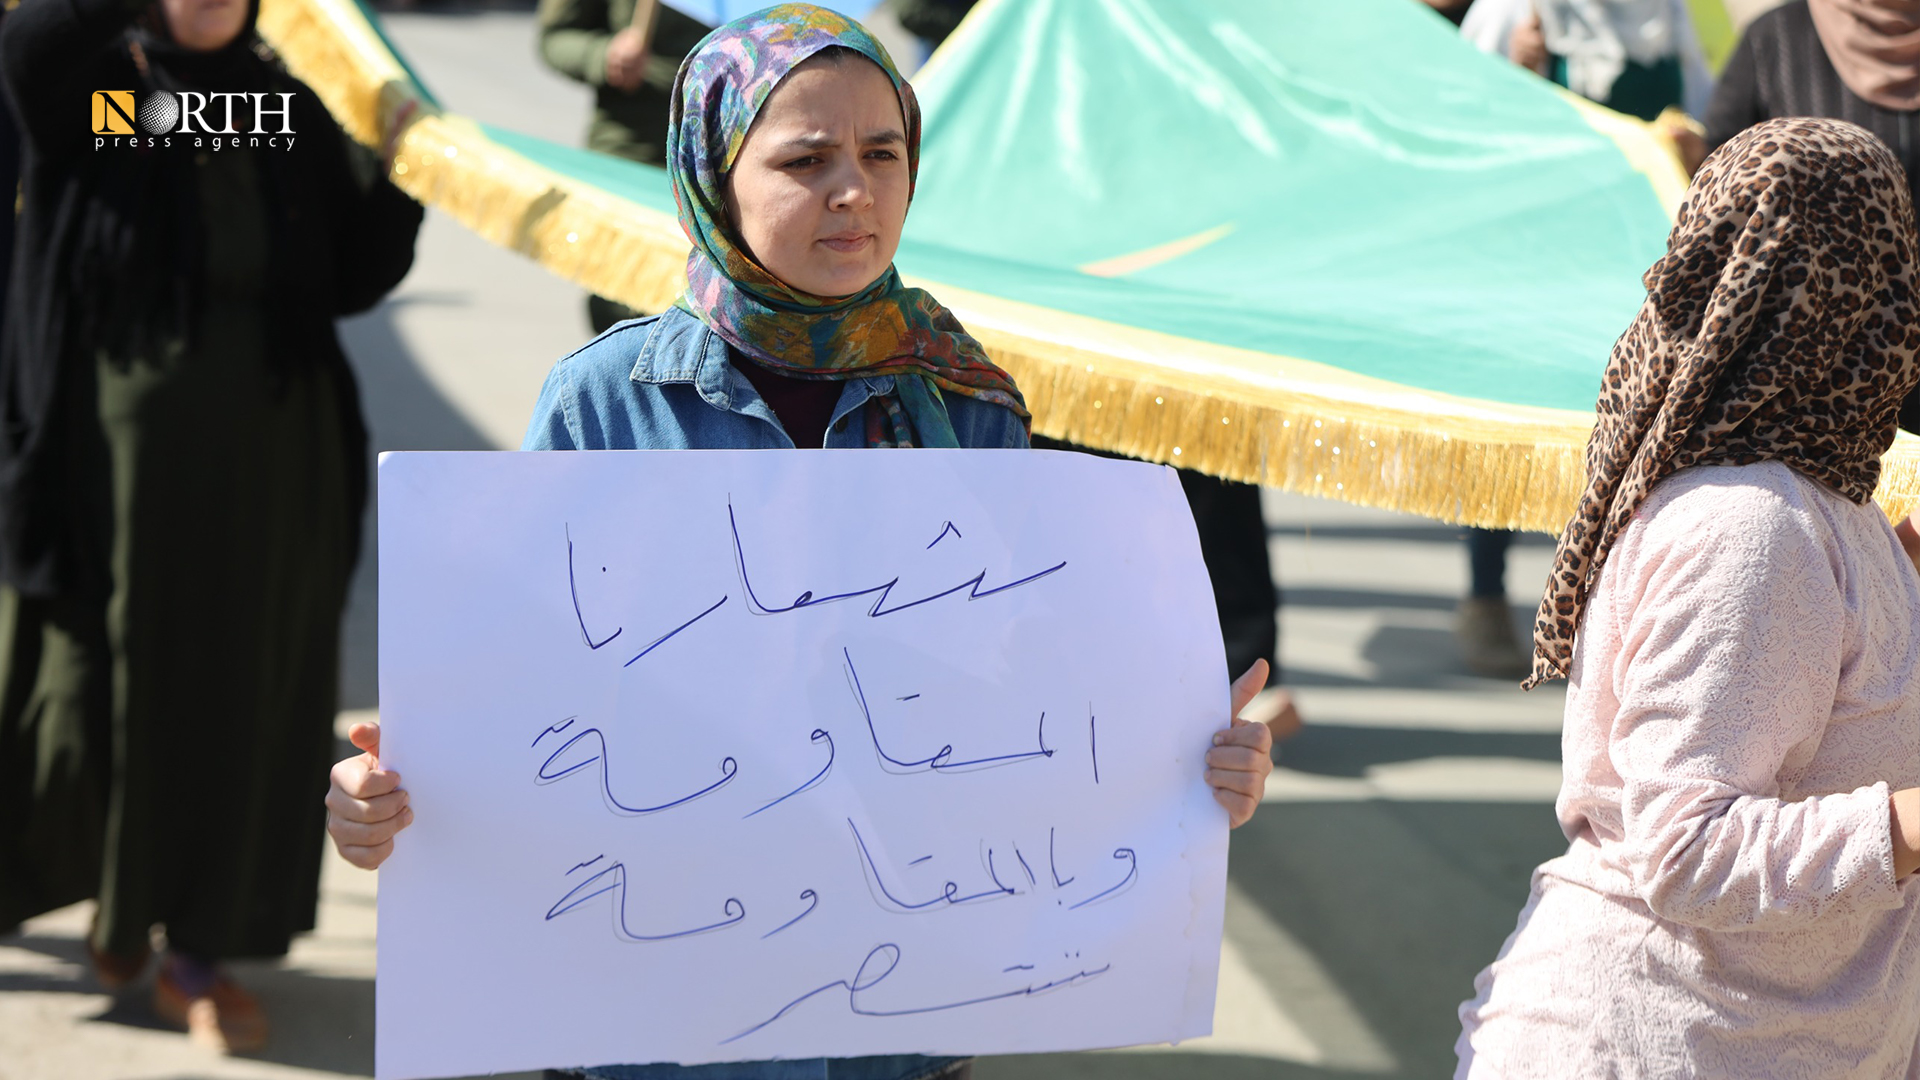 NORTH
press agency
شعارنا
المقاومة
وباالمقاومة
ننتصر